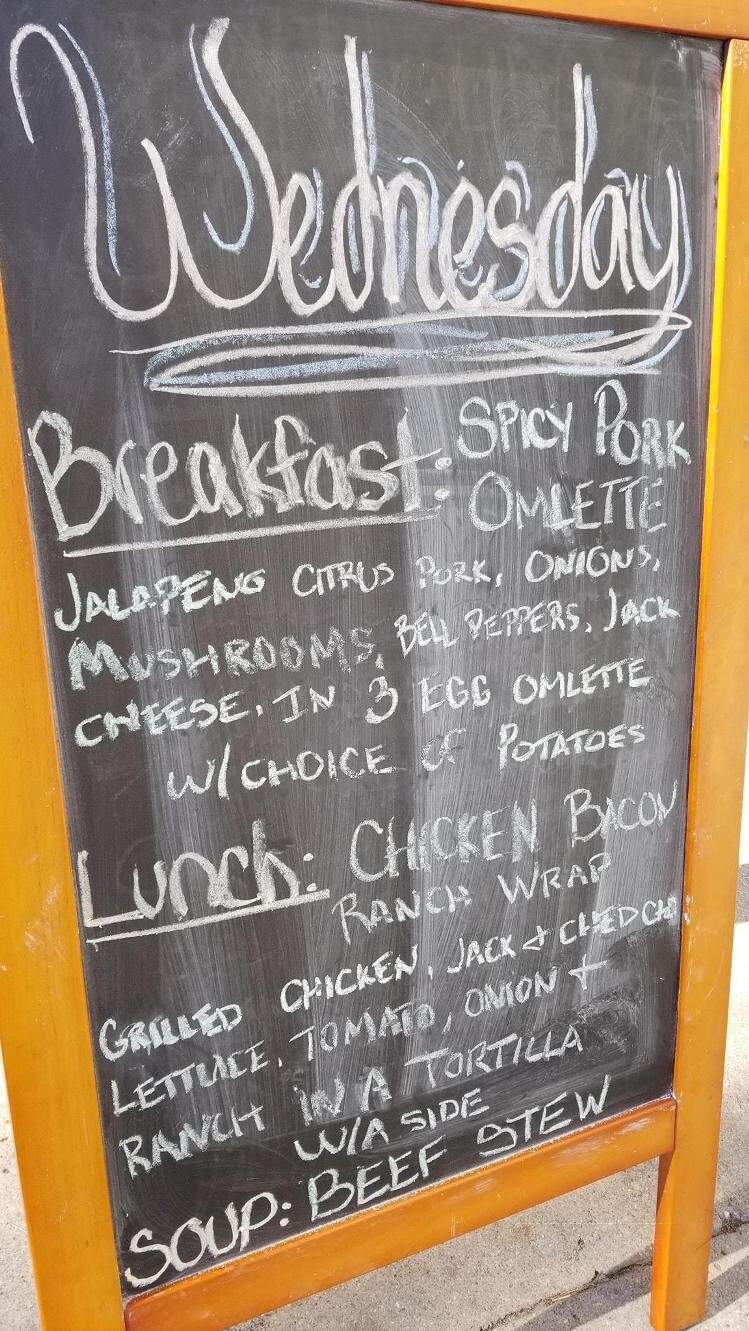 Wednesday
Breakfast: SPICY PORK
OMLETTE
JALAPENG CITRUS PORK, ONIONS,
MUSHROOMS, BELL PEPPERS, JACK
CHEESE, IN 3 EGG OMLETTE
W/CHOICE OF POTATOES
Lunch: CHICKEN BACON
RANCH WRAP
GRILLED CHICKEN, JACK + CHEDCHA
LETTUCE, TOMATO, ONION +
RANCH IN A TORTILLA
W/A SIDE
SOUP: BEEF STEW